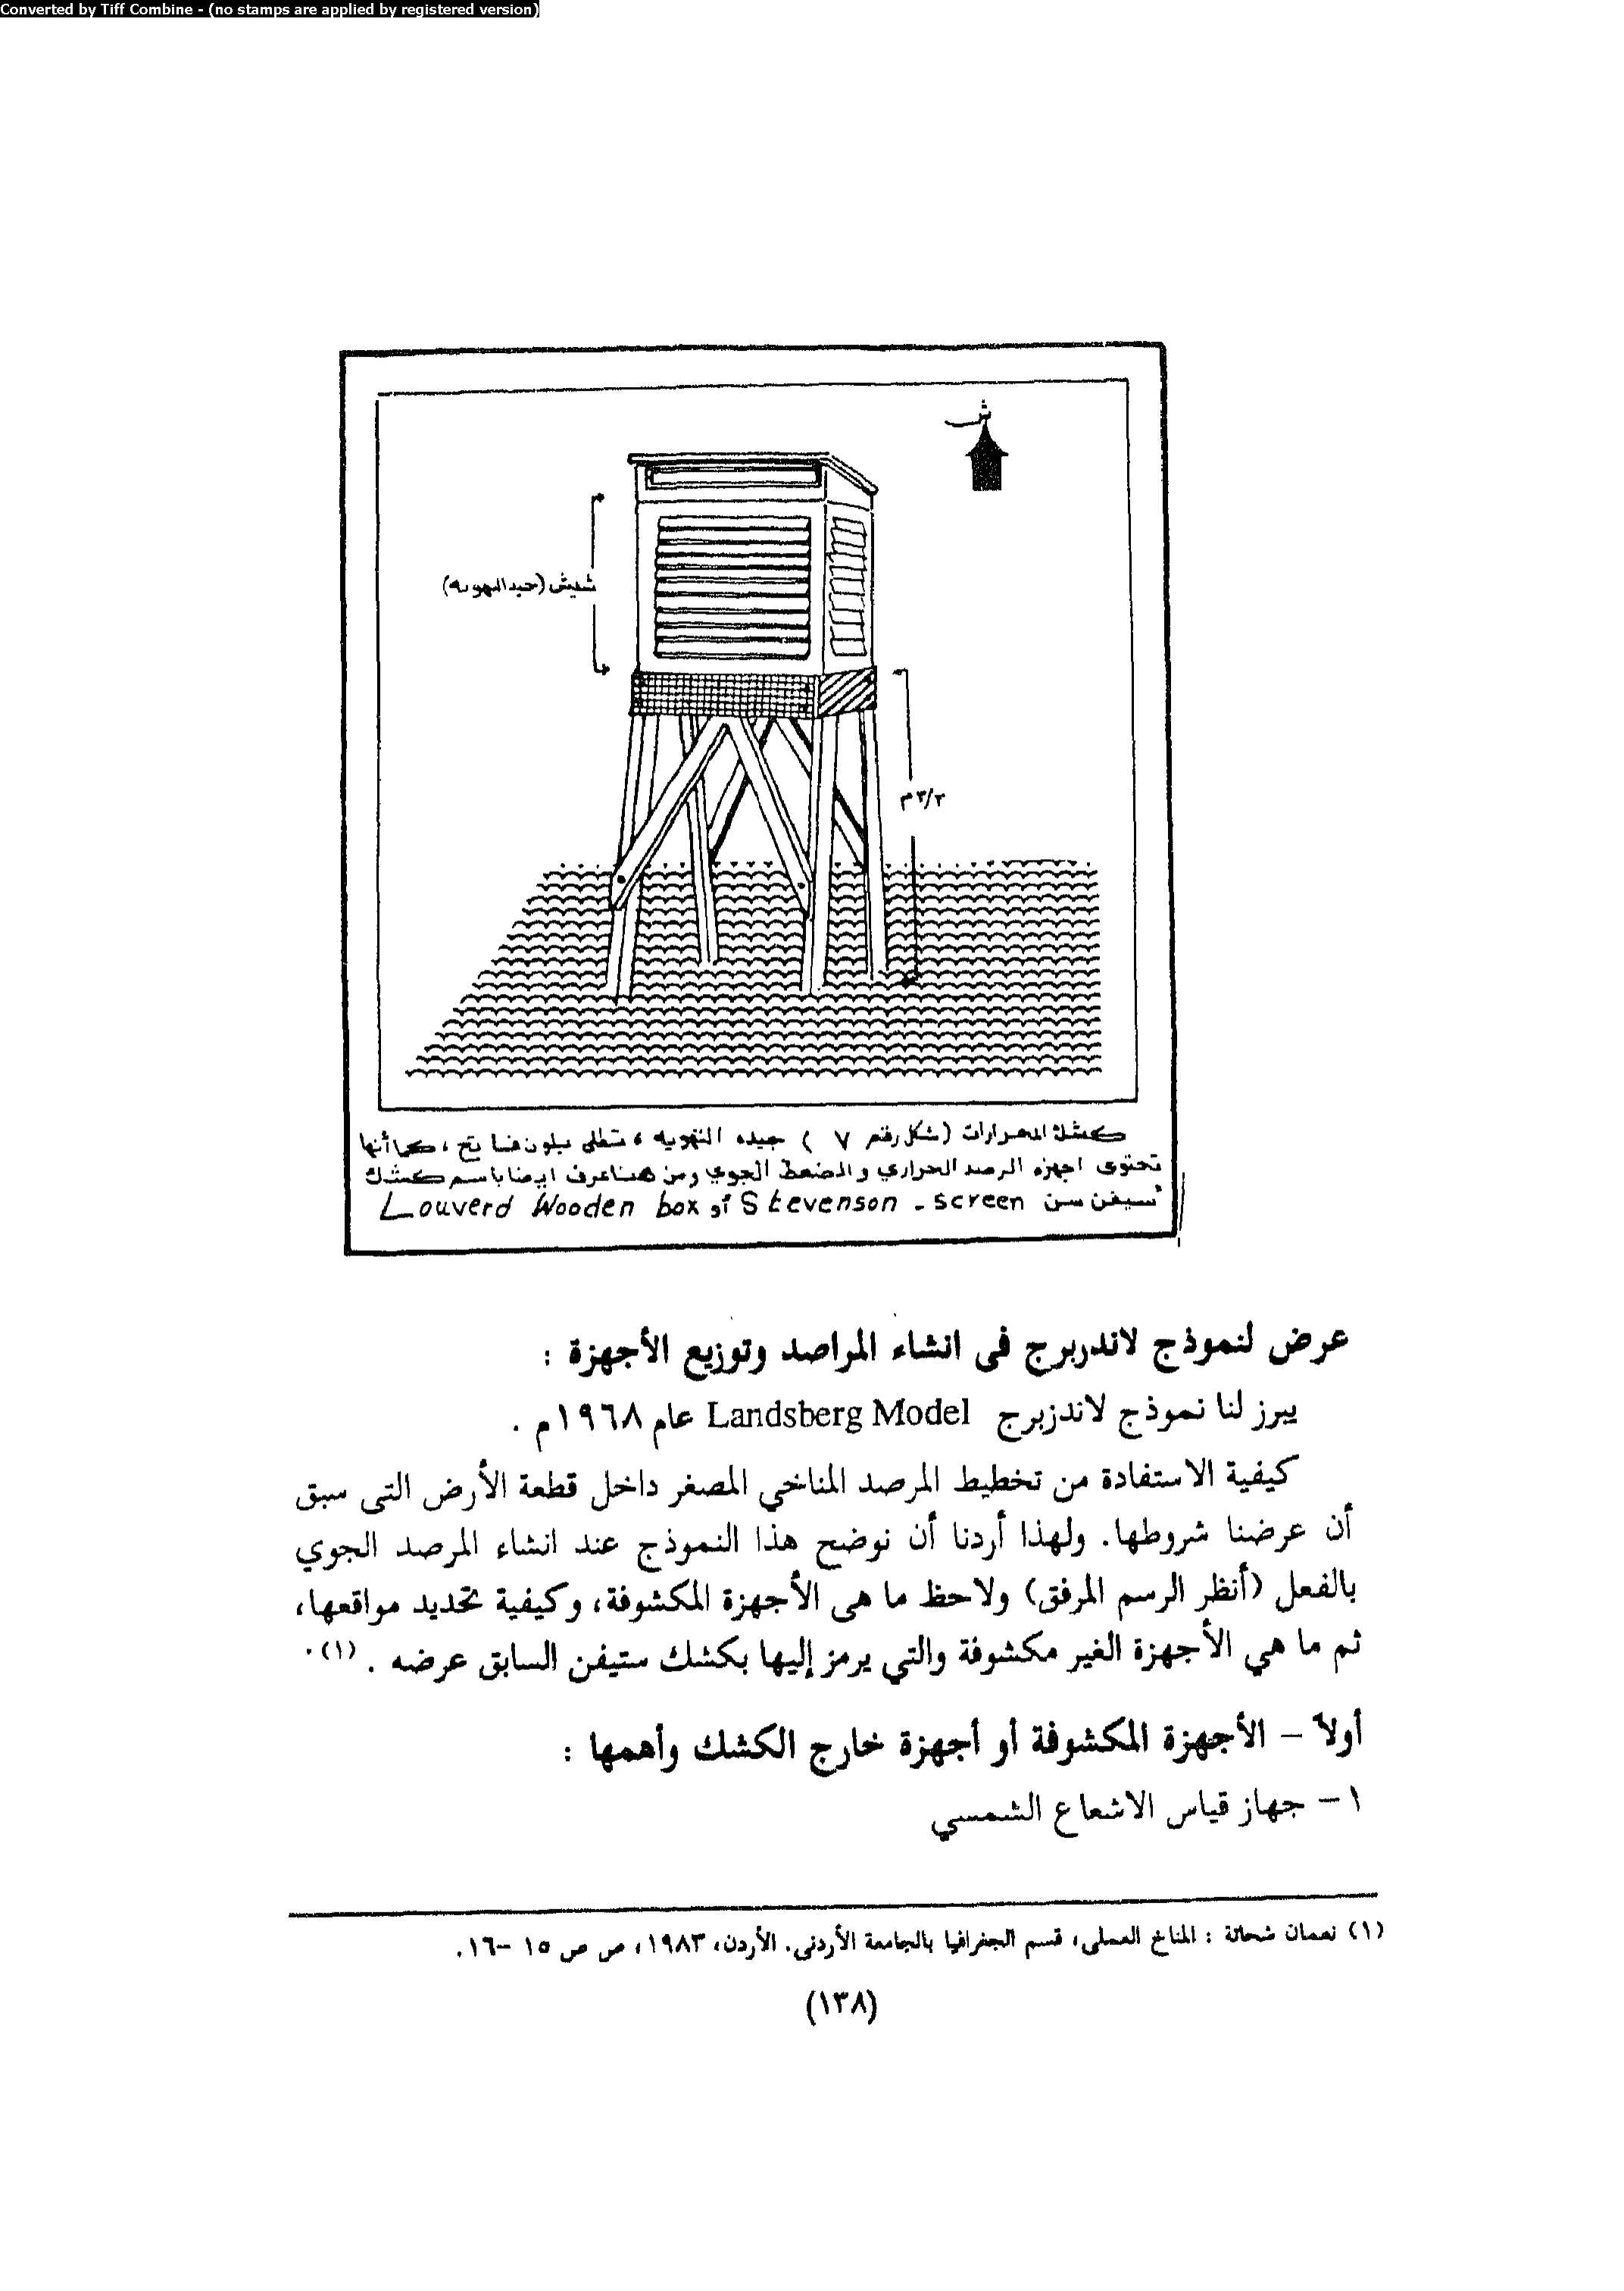 Converted by Tiff Combine - (no stamps are applied by registered version)
ش
شيش (جيد التهويه)
٣/٢م
كشك الحرارات (شكل رقم ٧ ) جيده التهويه ، تطلى بلون فاتح ، كما أنها
تحتوى اجهزه الرصد الحراري والضغط الجوي ومن هنا عرف ايضا باسم كشك
ستيفن سن Stevenson - screen أو Louverd Wooden box
عرض لنموذج لاندربرج فى انشاء المراصد وتوزيع الأجهزة :
يبرز لنا نموذج لاندزبرج Landsberg Model عام ١٩٦٨م .
كيفية الاستفادة من تخطيط المرصد المناخي المصغر داخل قطعة الأرض التى سبق
أن عرضنا شروطها. ولهذا أردنا أن نوضح هذا النموذج عند انشاء المرصد الجوي
بالفعل (أنظر الرسم المرفق) ولاحظ ما هى الأجهزة المكشوفة، وكيفية تحديد مواقعها،
ثم ما هي الأجهزة الغير مكشوفة والتي يرمز إليها بكشك ستيفن السابق عرضه . (١).
أولاً – الأجهزة المكشوفة أو أجهزة خارج الكشك وأهمها :
١– جهاز قياس الاشعاع الشمسي
(١) نعمان شحاتة : المناخ العملى، قسم الجغرافيا بالجامعة الأردنى. الأردن، ١٩٨٣، ص ص ١٥ –١٦.
(١٣٨)